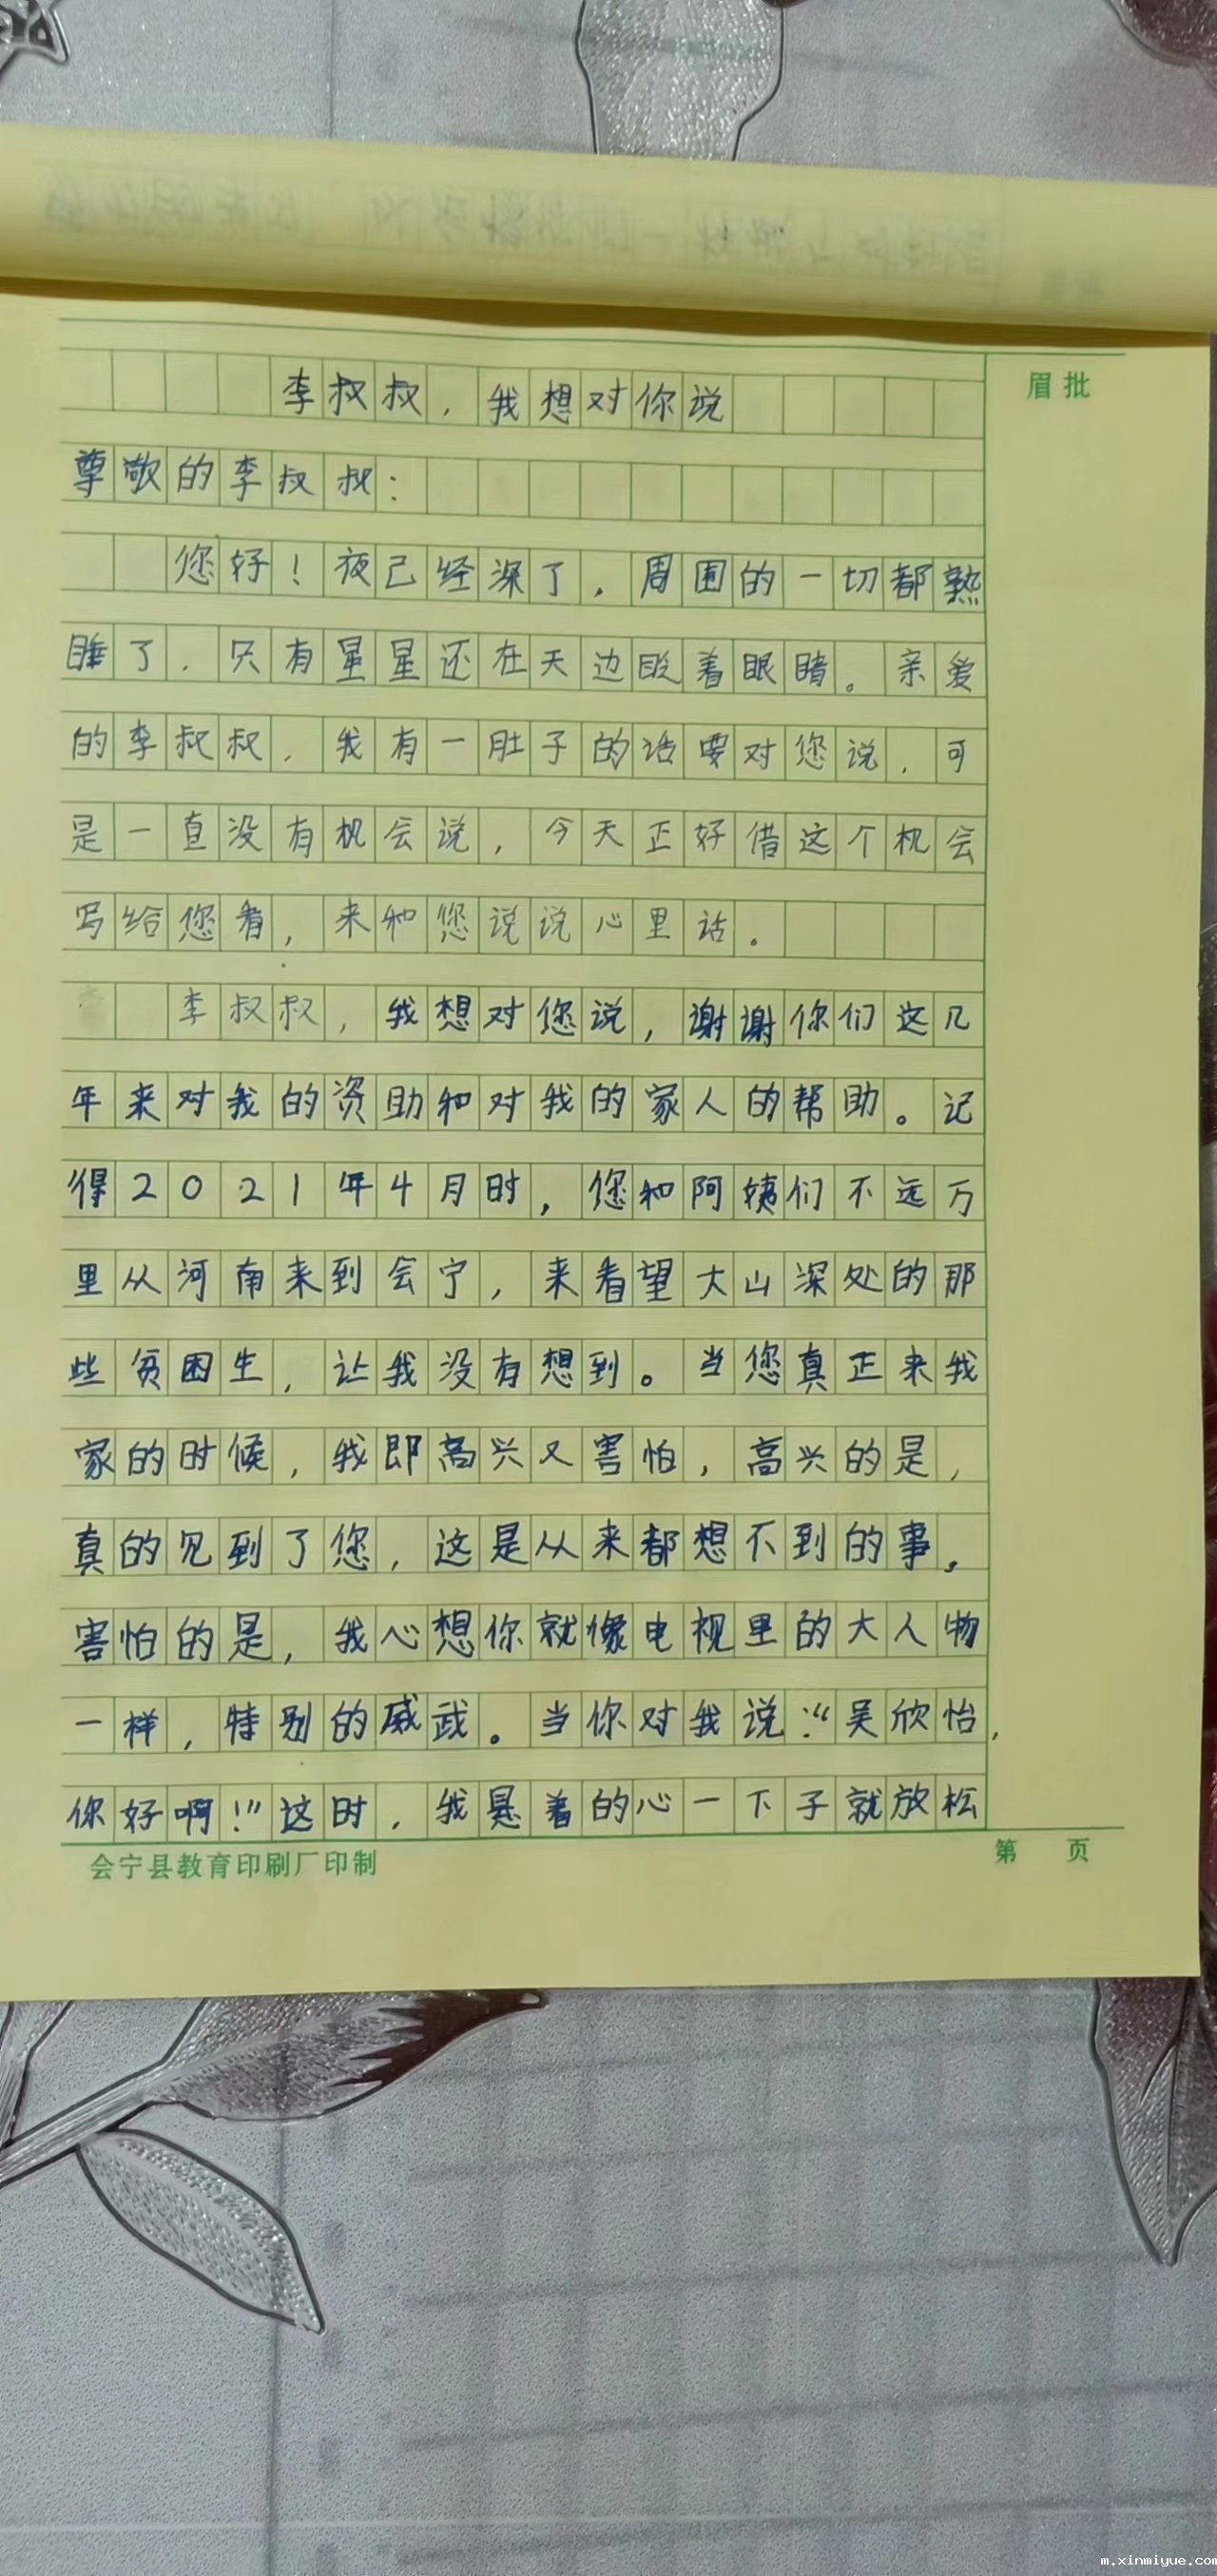 李叔叔，我想对你说
眉批
尊敬的李叔叔：
您好！夜已经深了，周围的一切都熟
睡了，只有星星还在天边眨着眼睛。亲爱
的李叔叔，我有一肚子的话要对您说，可
是一直没有机会说，今天正好借这个机会
写给您看，来和您说说心里话。
李叔叔，我想对您说，谢谢你们这几
年来对我的资助和对我的家人的帮助。记
得2021年4月时，您和阿姨们不远万
里从河南来到会宁，来看望大山深处的那
些贫困生，让我没有想到。当您真正来我
家的时候，我即高兴又害怕，高兴的是，
真的见到了您，这是从来都想不到的事。
害怕的是，我心想你就像电视里的大人物
一样，特别的威武。当你对我说：“吴欣怡，
你好啊！”这时，我悬着的心一下子就放松
会宁县教育印刷厂印制
第 页
m.xinmiyue.com